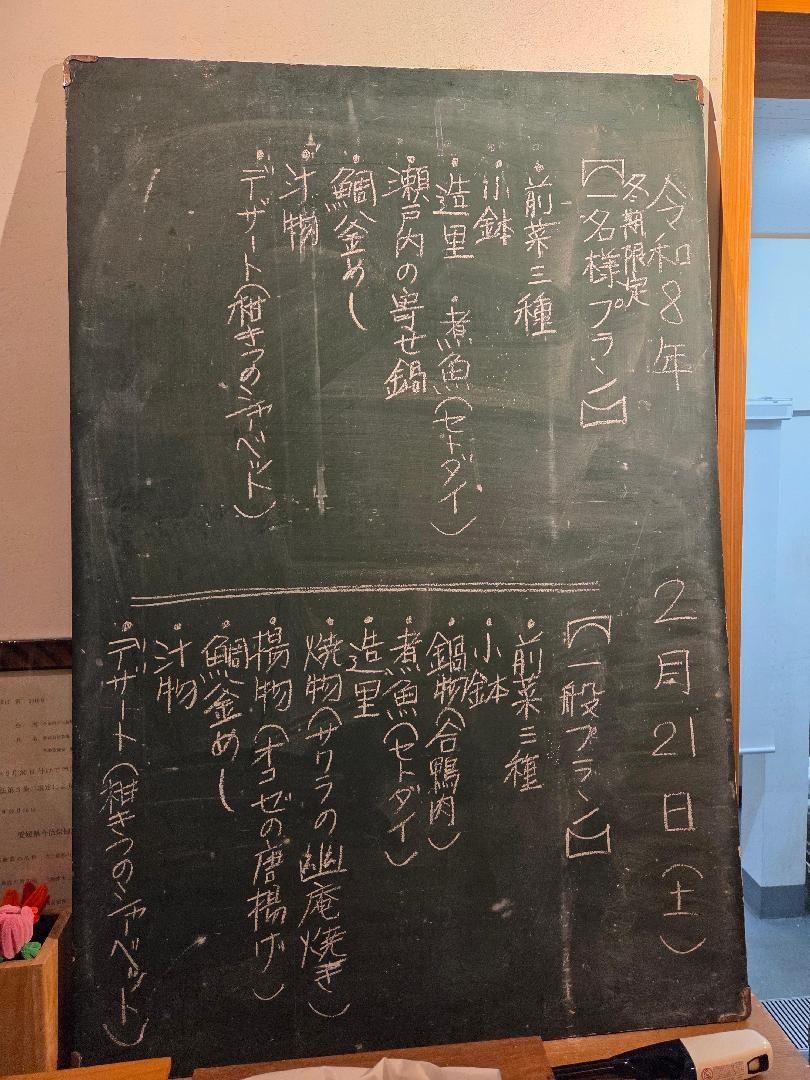 令和8年 2月21日(土)
冬期限定
【一名様プラン】
・前菜三種
・小鉢
・造里 ・煮魚(セトダイ)
・瀬戸内の寄せ鍋
・鯛釜めし
・汁物
・デザート(柑きつのシャーベット)
【一般プラン】
・前菜三種
・小鉢
・鍋物(合鴨肉)
・煮魚(セトダイ)
・造里
・焼物(サワラの幽庵焼き)
・揚物(オコゼの唐揚げ)
・鯛釜めし
・汁物
・デザート(柑きつのシャーベット)